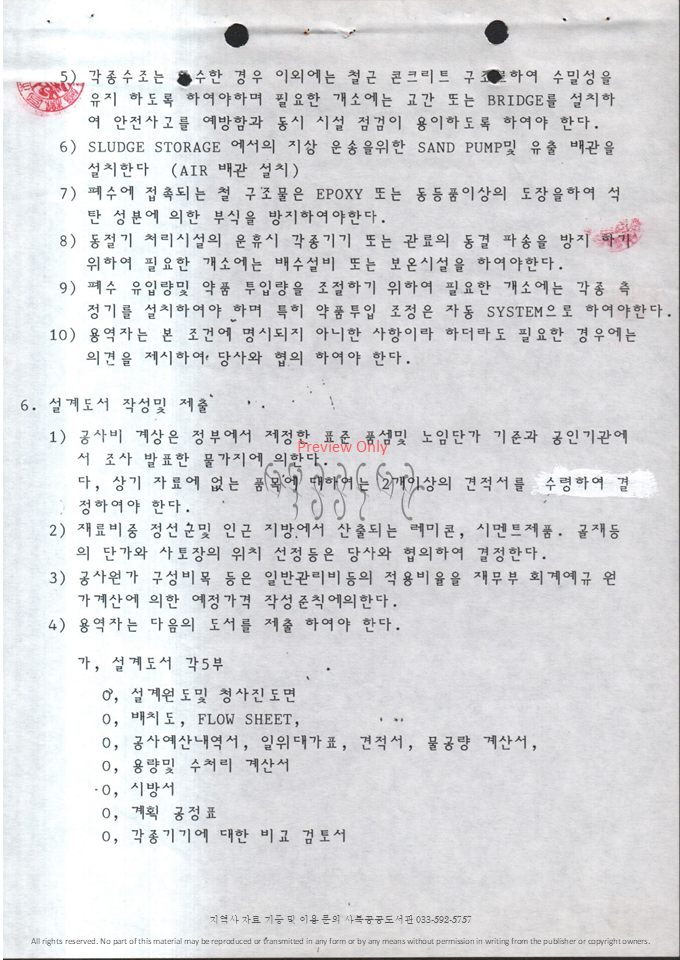 5) 각종수조는 특수한 경우 이외에는 철근 콘크리트 구조로하여 수밀성을
유지 하도록 하여야하며 필요한 개소에는 교간 또는 BRIDGE를 설치하
여 안전사고를 예방함과 동시 시설 점검이 용이하도록 하여야 한다.
6) SLUDGE STORAGE 에서의 지상 운송을위한 SAND PUMP및 유출 배관을
설치한다 (AIR 배관 설치)
7) 폐수에 접촉되는 철 구조물은 EPOXY 또는 동등품이상의 도장을하여 석
탄 성분에 의한 부식을 방지하여야한다.
8) 동절기 처리시설의 운휴시 각종기기 또는 관료의 동결 파송을 방지 하기
위하여 필요한 개소에는 배수설비 또는 보온시설을 하여야한다.
9) 폐수 유입량및 약품 투입량을 조절하기 위하여 필요한 개소에는 각종 측
정기를 설치하여야 하며 특히 약품투입 조정은 자동 SYSTEM으로 하여야한다.
10) 용역자는 본 조건에 명시되지 아니한 사항이라 하더라도 필요한 경우에는
의견을 제시하여 당사와 협의 하여야 한다.
6. 설계도서 작성및 제출
1) 공사비 계상은 정부에서 제정한 표준 품셈및 노임단가 기준과 공인기관에
서 조사 발표한 물가지에 의한다.
Preview Only
다, 상기 자료에 없는 품목에 대하여는 2개이상의 견적서를 수령하여 결
정하여야 한다.
2) 재료비중 정선군및 인근 지방에서 산출되는 레미콘, 시멘트제품. 골재등
의 단가와 사토장의 위치 선정등은 당사와 협의하여 결정한다.
3) 공사원가 구성비목 등은 일반관리비등의 적용비율을 재무부 회계예규 원
가계산에 의한 예정가격 작성준칙에의한다.
4) 용역자는 다음의 도서를 제출 하여야 한다.
가, 설계도서 각5부
0, 설계원도및 청사진도면
0, 배치도, FLOW SHEET,
0, 공사예산내역서, 일위대가표, 견적서, 물공량 계산서,
0, 용량및 수처리 계산서
0, 시방서
0, 계획 공정표
0, 각종기기에 대한 비교 검토서
지역사 자료 기증 및 이용 문의 사북공공도서관 033-592-5757
All rights reserved. No part of this material may be reproduced or transmitted in any form or by any means without permission in writing from the publisher or copyright owners.